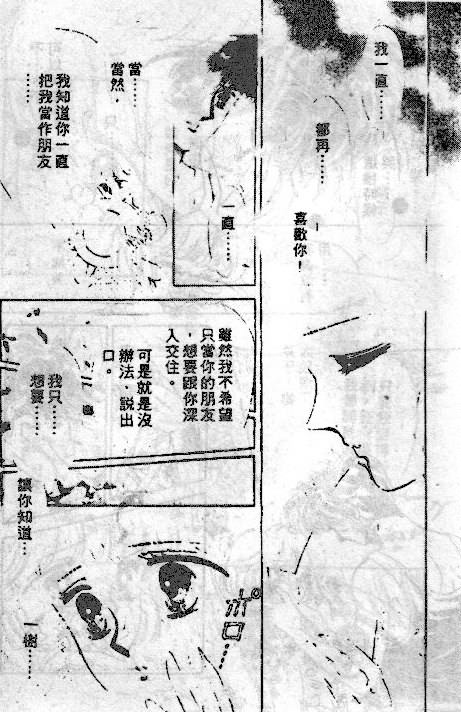 我一直……
都再……
喜歡你！
一直……
當……
當然，
我知道你一直
把我當作朋友
……
雖然我不希望
只當你的朋友
，想要跟你深
入交住。
可是就是沒
辦法，說出
口。
我只……
想要……
讓你知道…
ポロ……
一樹……